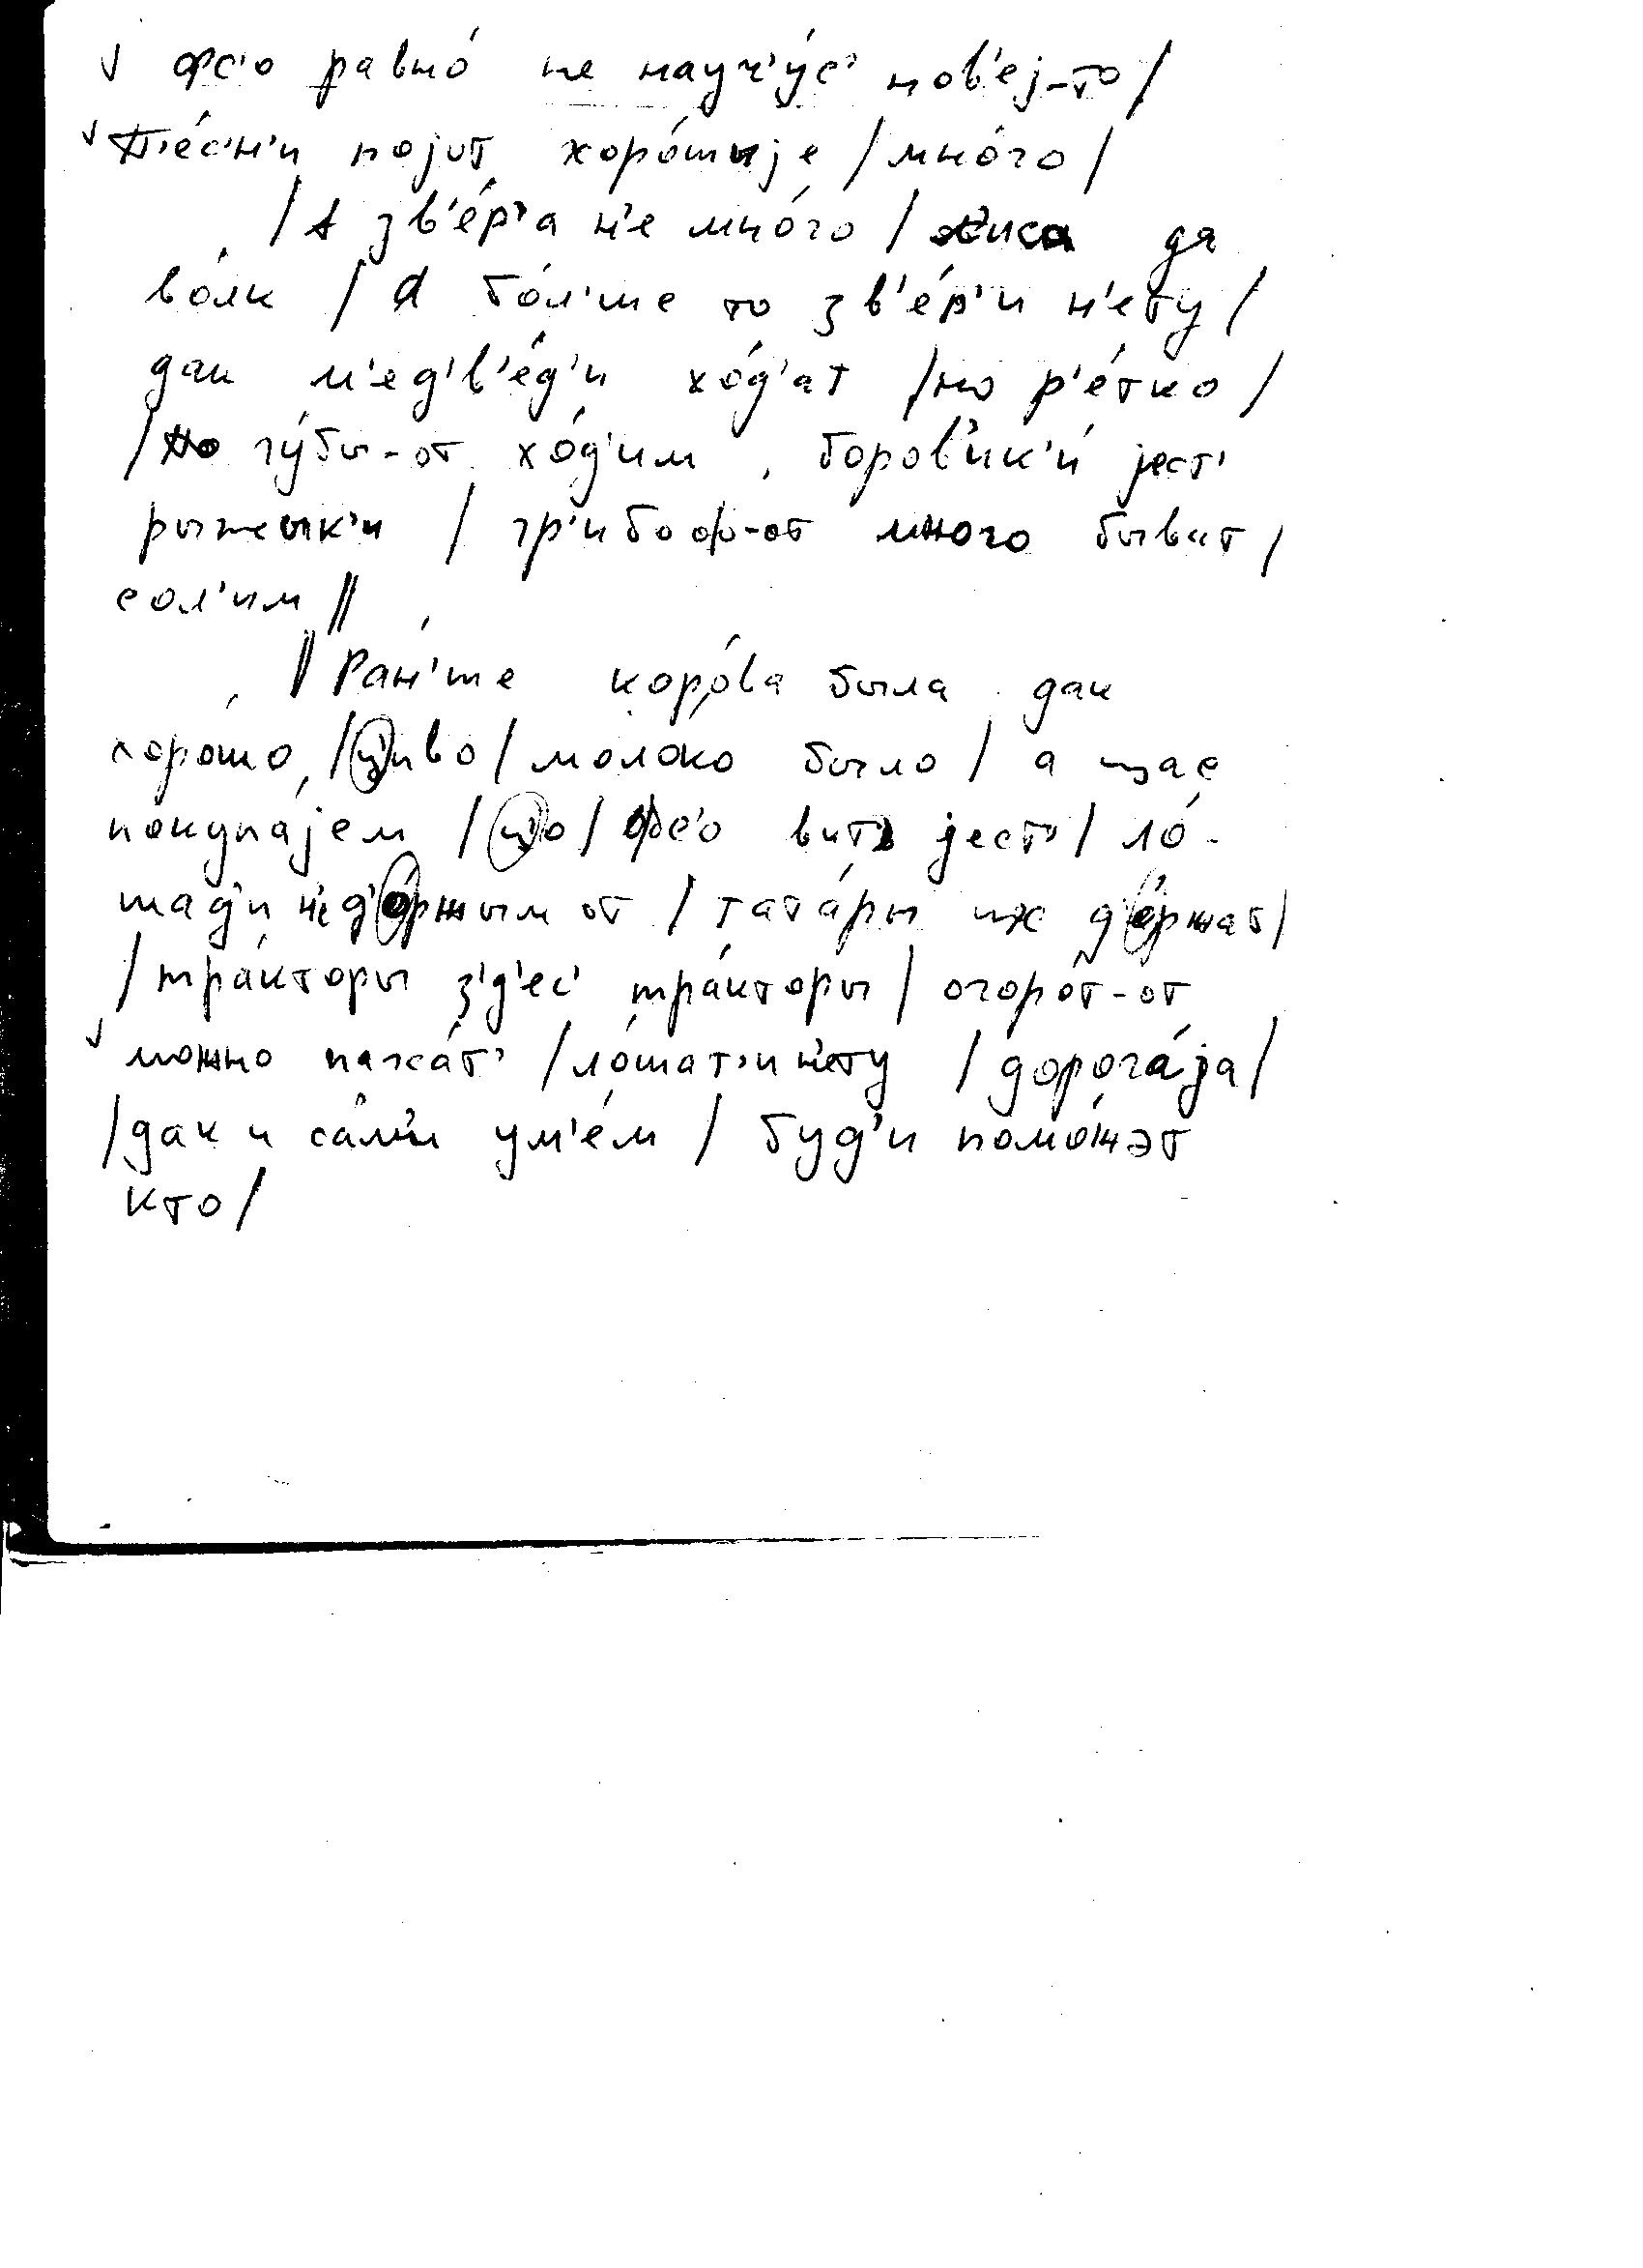 √ фс'о равно́ не науч'у́с' нов'еj-то /
√ П'е́с'н'и поjут хоро́шыjе / мно́го /
/ А зв'е́р'а н'е мно́го / лиса да
во́лк / А бо́л'ше то зв'е́р'и н'ету /
дак м'ед'в'е́д'и хо́д'ат / но р'е́тко /
/ По гу́бы-от хо́д'им, боров'ик'и́ jест'
рыжык'и / гр'ибоф-от много быват /
сол'им //
// Ра́н'ше коро́ва была дак
хорошо / ц'иво / молоко было / а щас
покупа́jем / ц'о / фс'о вит' jест' / ло́-
шад'и н'е д'о́ржым от / тата́ры их д'е́ржат /
/ тра́кторы з'д'ес' тра́кторы / огоро́т-от
√ можно паха́т' / ло́шат'и н'ету / дорога́jа /
/ дак и са́м'и ум'е́м / буд'и помо́жэт
кто /